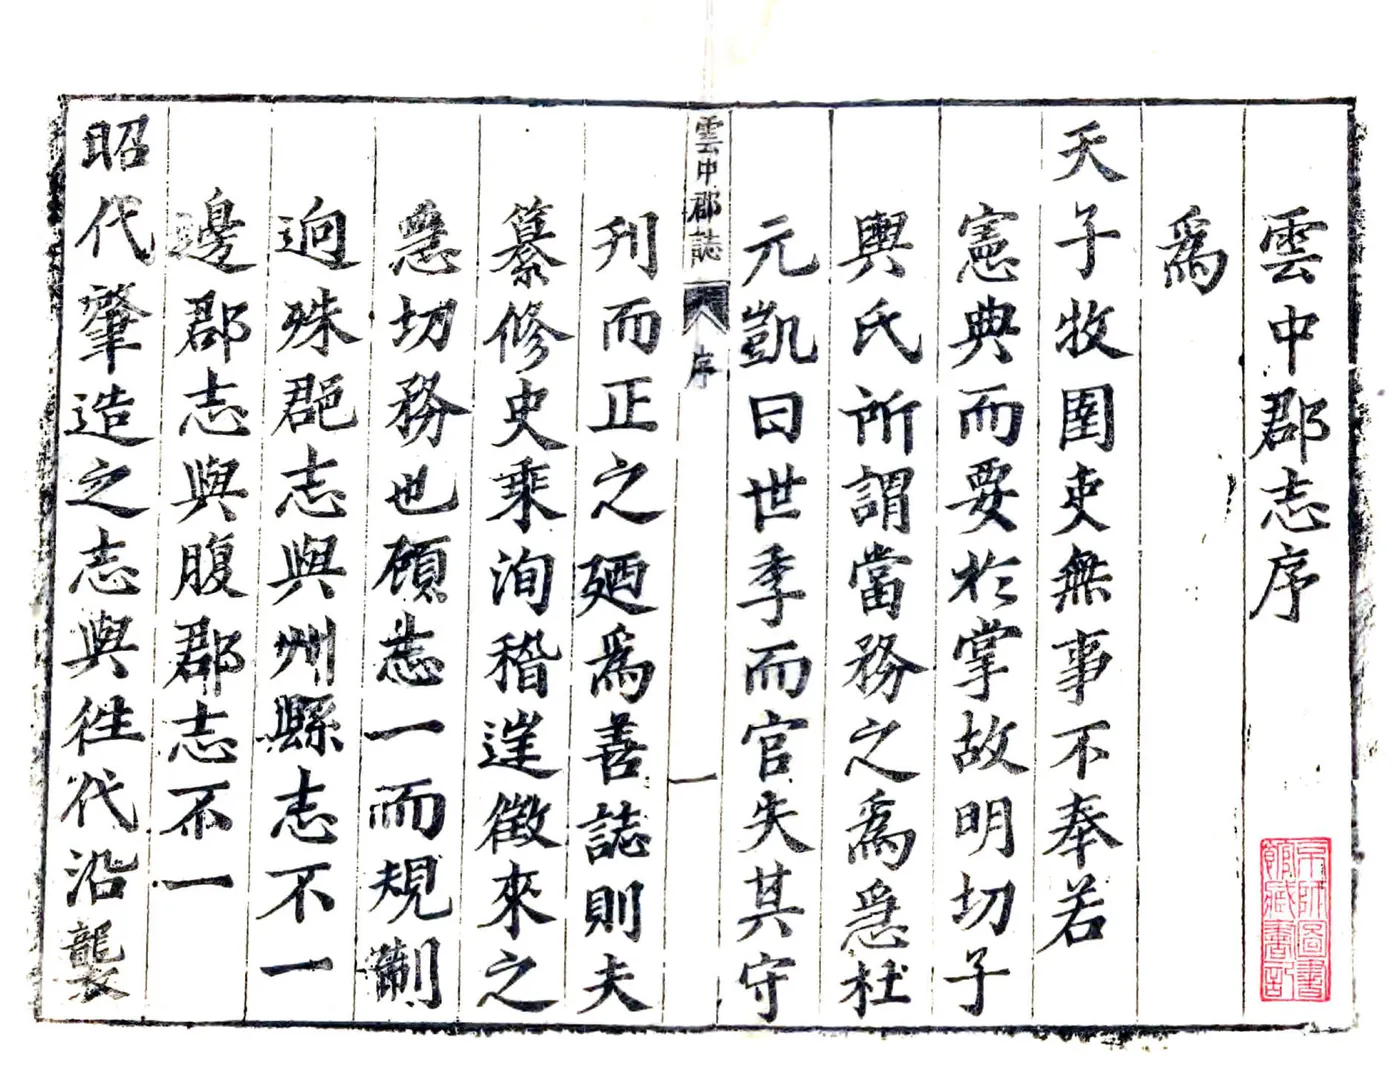 雲中郡志序
爲
天子牧圉吏無事不奉若
憲典而要於掌故明切子
輿氏所謂當務之爲急杜
元凱曰世季而官失其守
雲中郡誌
序
一
刋而正之廼爲善誌則夫
纂修史乘洵稽遑徵來之
急切務也顧志一而規制
逈殊郡志與州縣志不一
邊郡志與腹郡志不一
昭代肇造之志與徃代沿襲
京師圖書
館藏書記